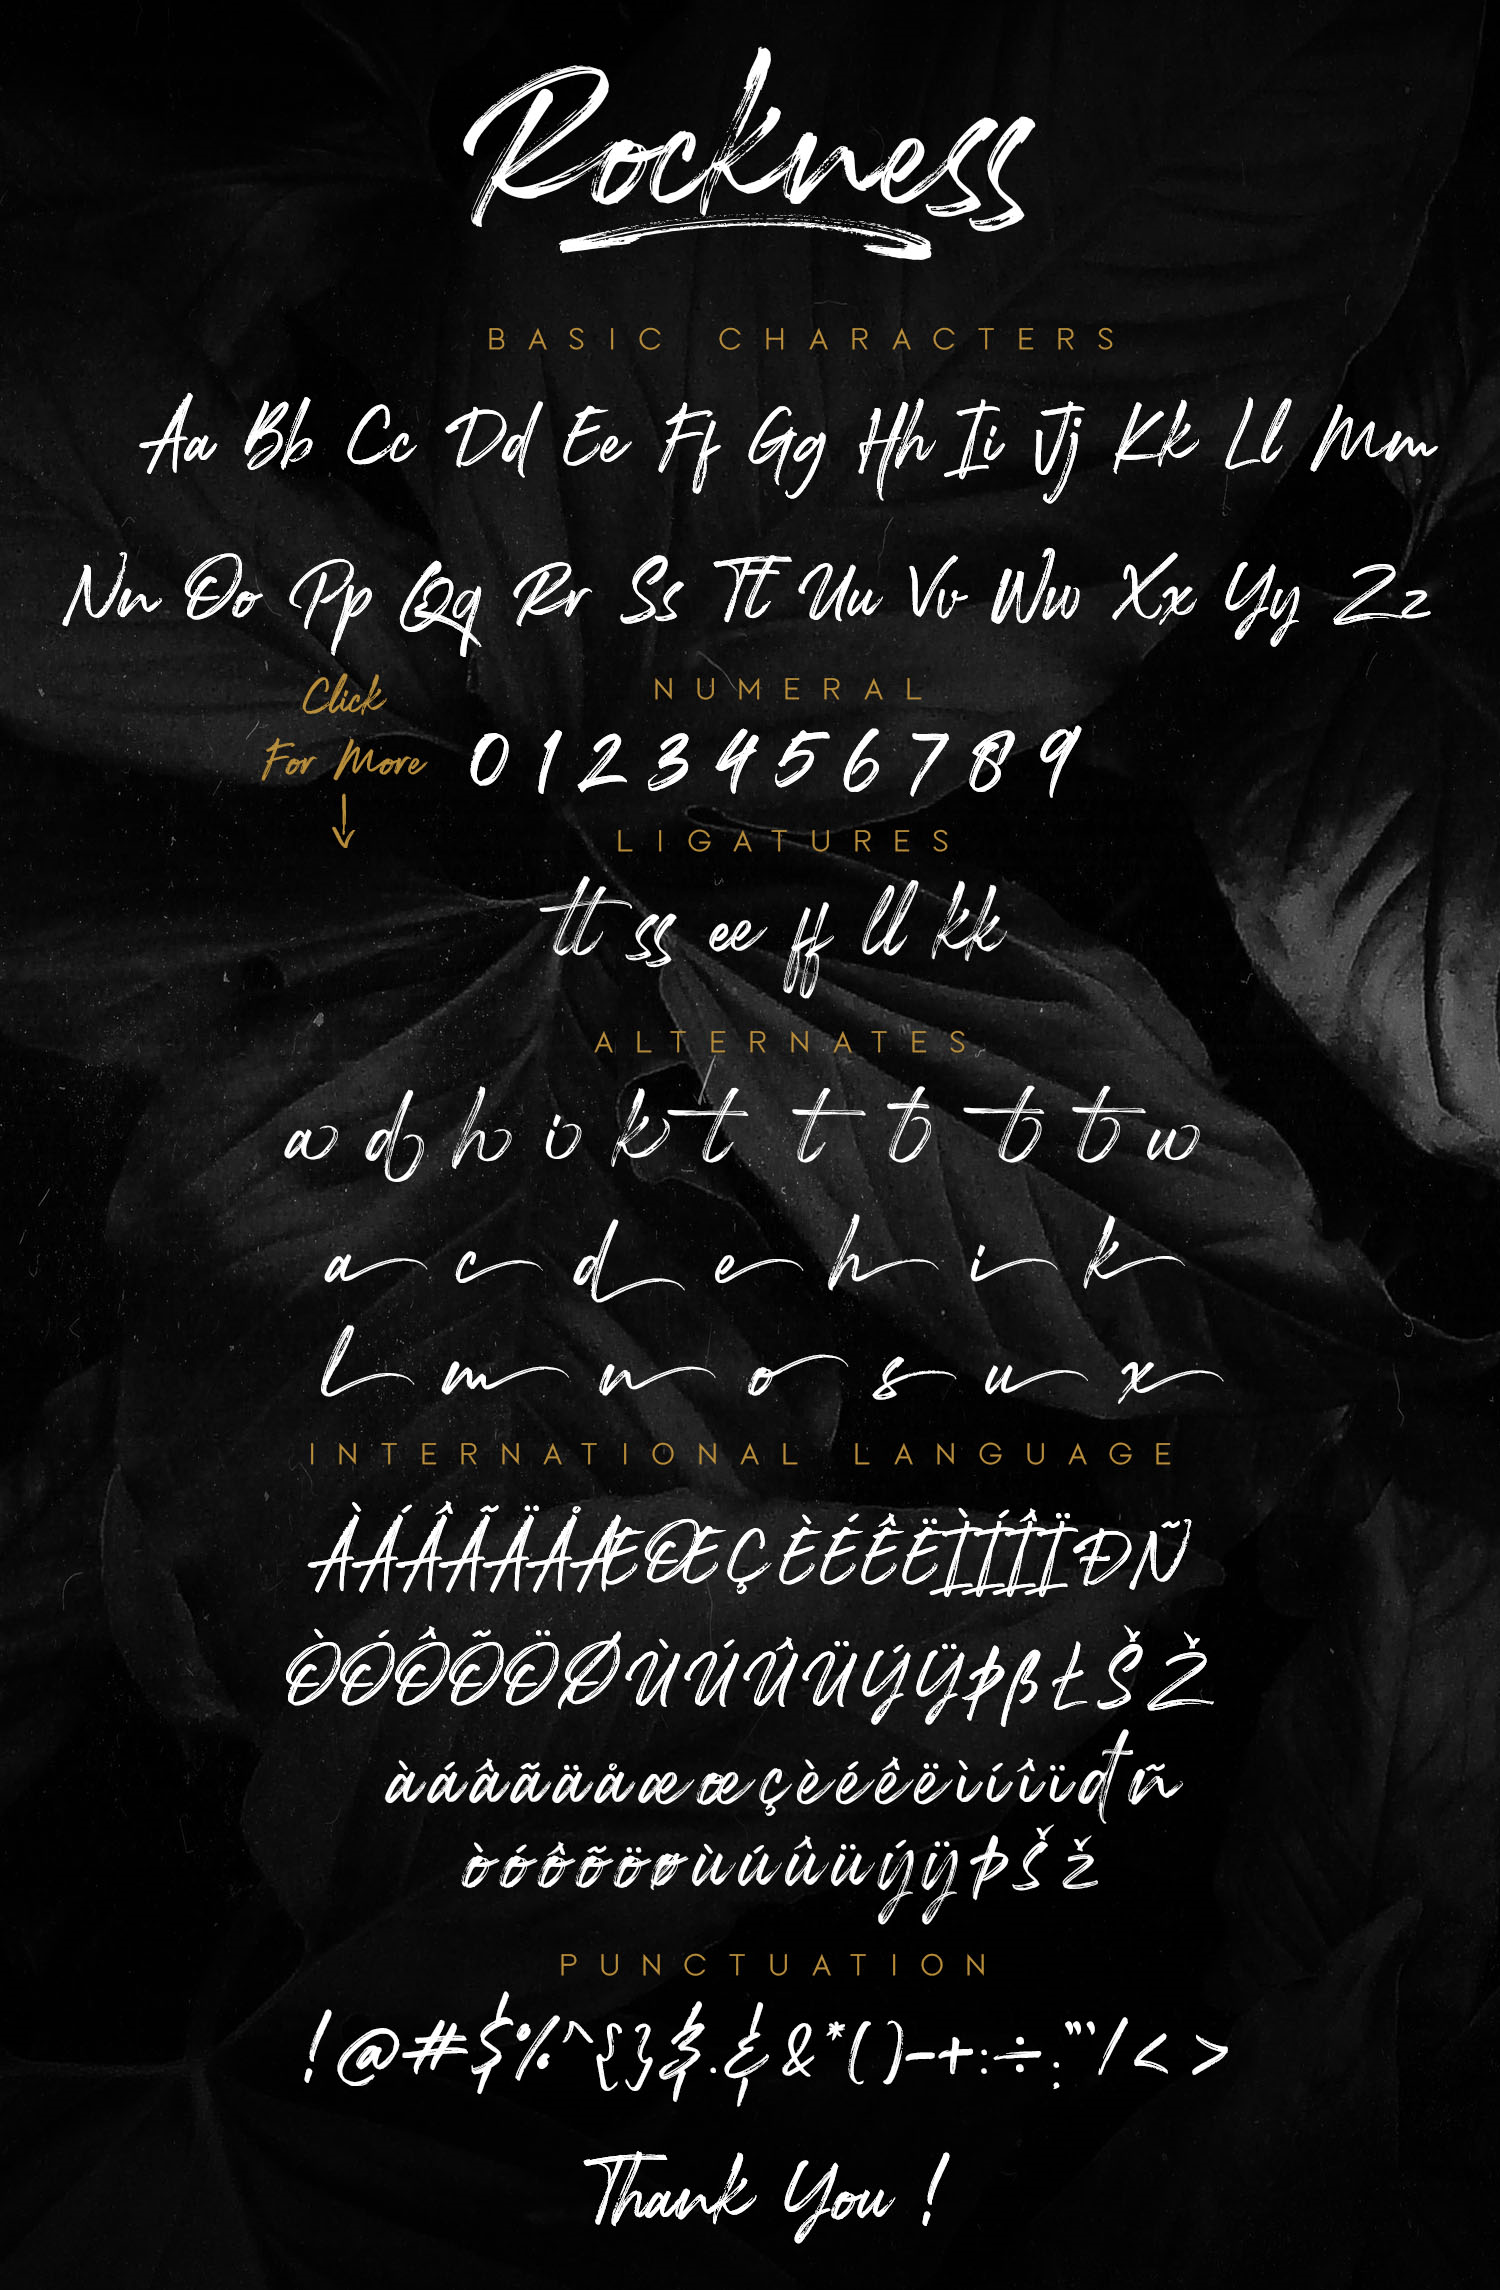 Rockness
BASIC CHARACTERS
Aa Bb Cc Dd Ee Ff Gg Hh Ii Jj Kk Ll Mm
Nn Oo Pp Qq Rr Ss Tt Uu Vv Ww Xx Yy Zz
Click
For More
NUMERAL
0 1 2 3 4 5 6 7 8 9
LIGATURES
tt ss ee ff ll kk
ALTERNATES
a d h i k t t t t t u
a c d e h i k
l m n o s u x
INTERNATIONAL LANGUAGE
ÀÁÂÃÄÅÆŒÇÈÉÊËÌÍÎÏÐÑ
ÒÓÔÕÖØÙÚÛÜÝŸÞßŁŠŽ
àáâãäåæœçèéêëìíîïđñ
òóôõöøùúûüýÿÞŠž
PUNCTUATION
!@#$%^{}&*()-+:÷"'/< >
Thank You !